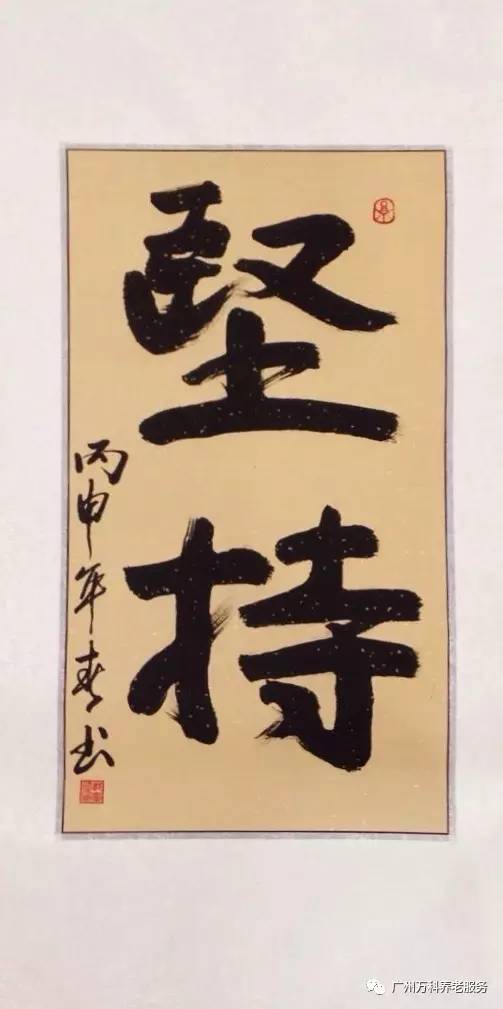 堅持
丙申年春书
广州万科养老服务